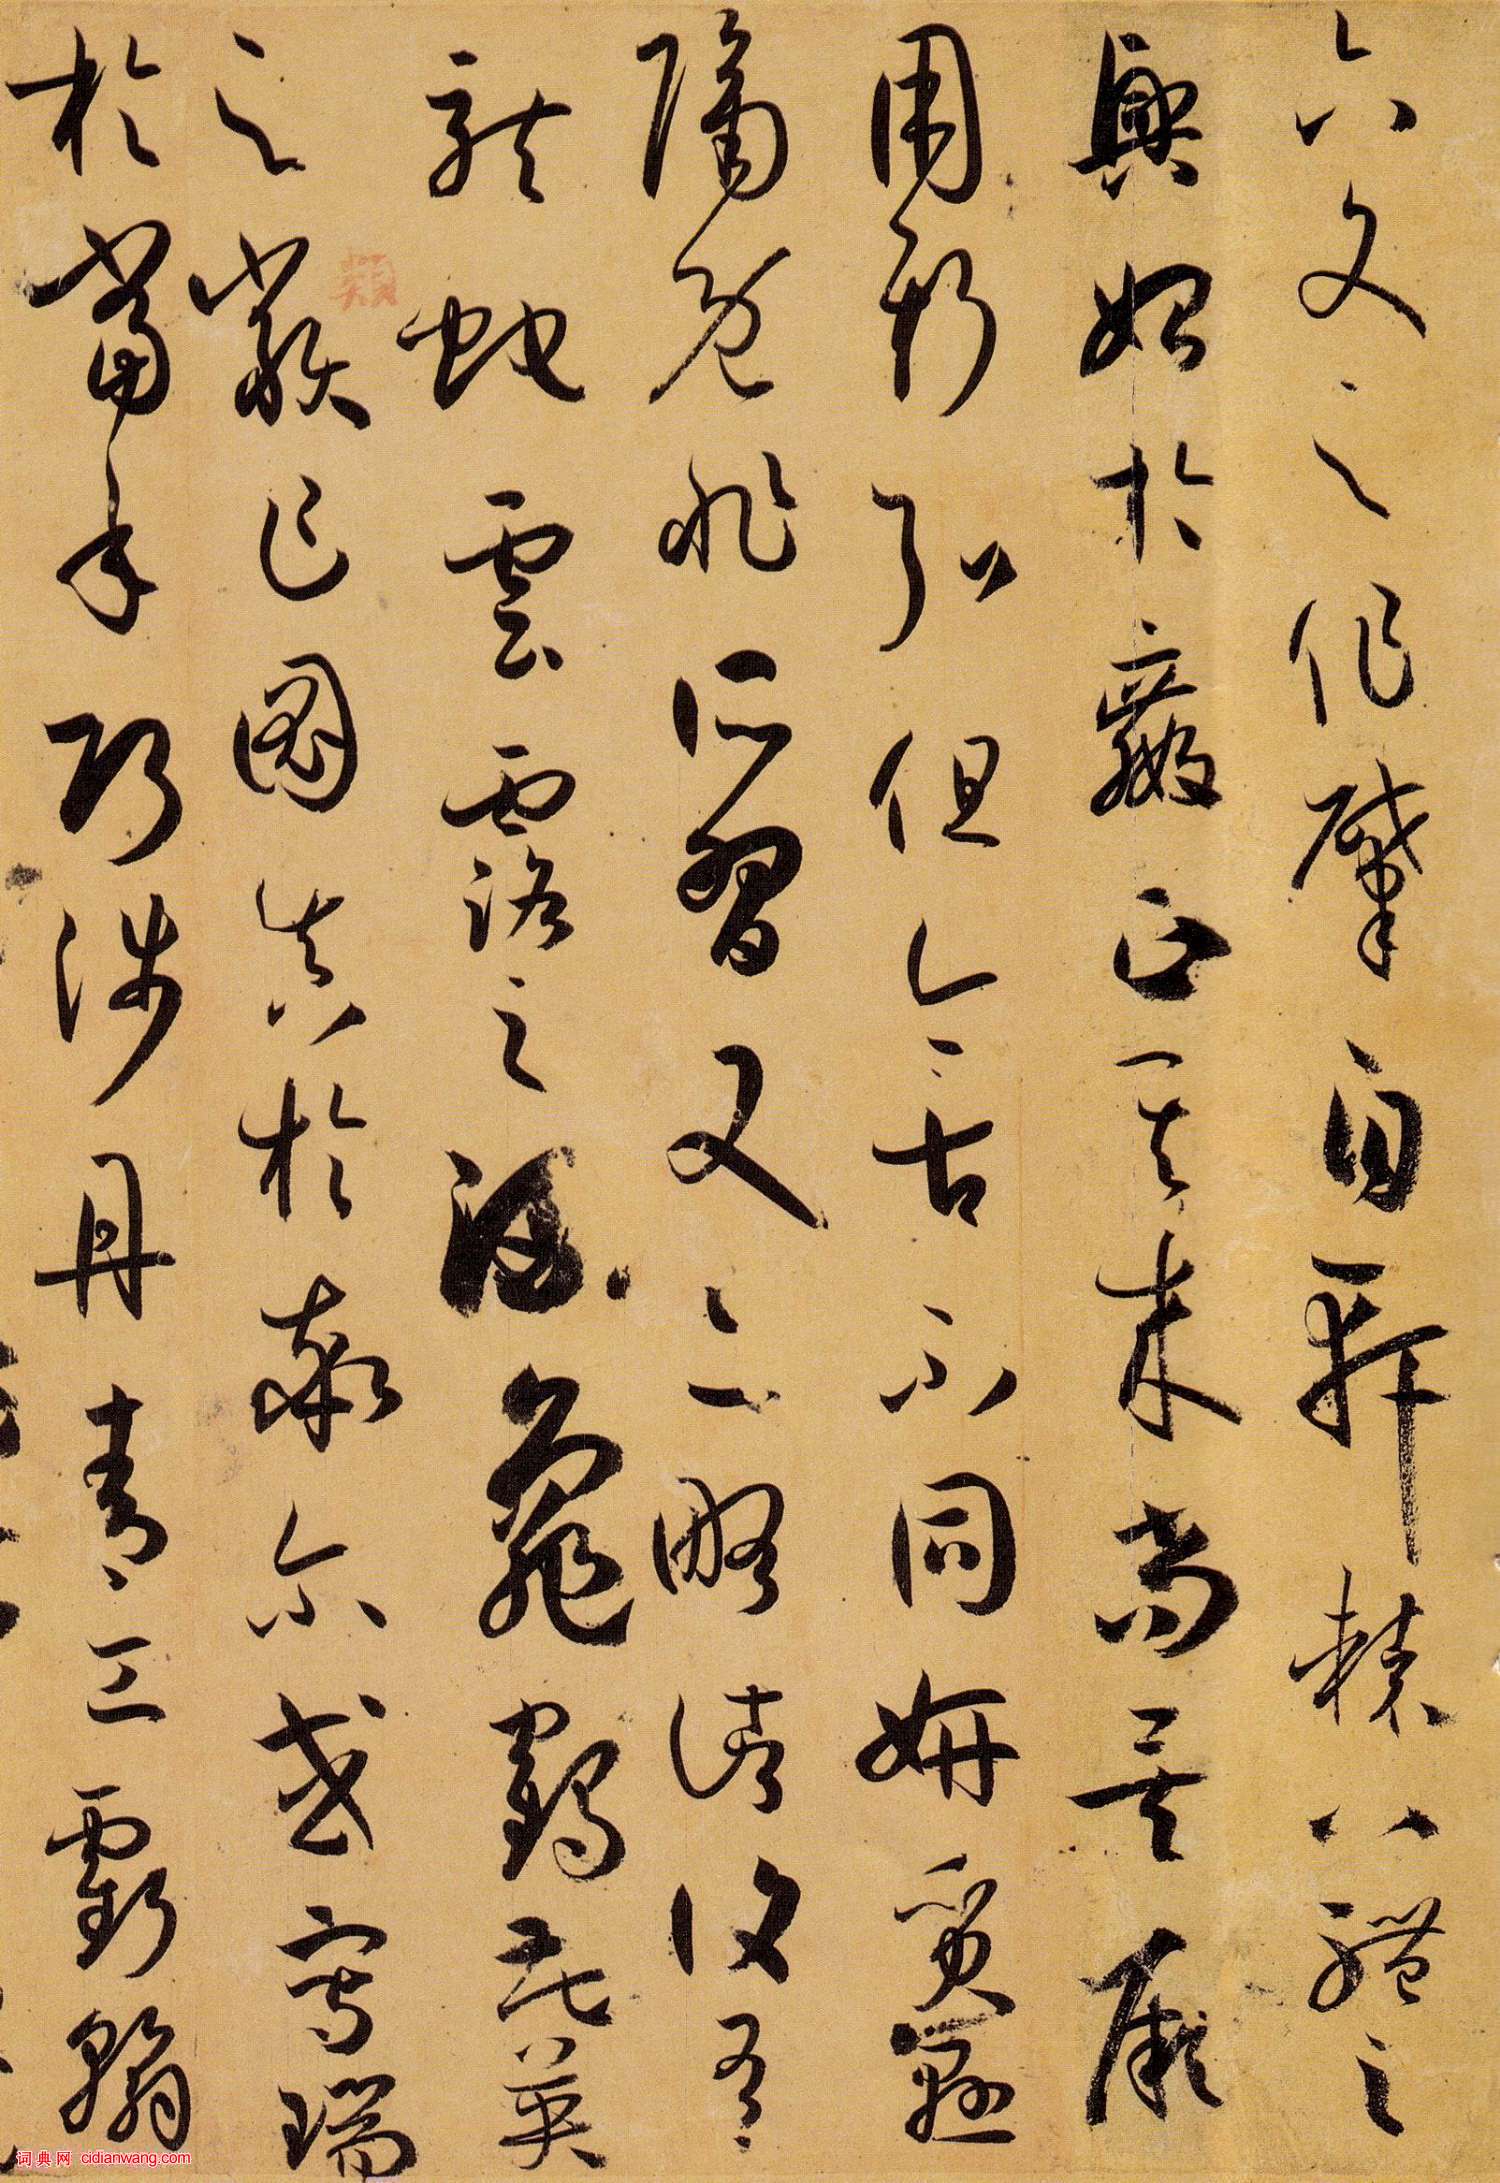 六文之作肇自軒轅八體之
興始於嬴正其來尚矣厥
用斯弘但今古不同妍質懸
隔既非所習又亦略諸復有
龍蛇雲露之流龜鶴花英
之類乍圖真於率爾或寫瑞
於當年巧涉丹青工虧翰
词典网 cidianwang.com